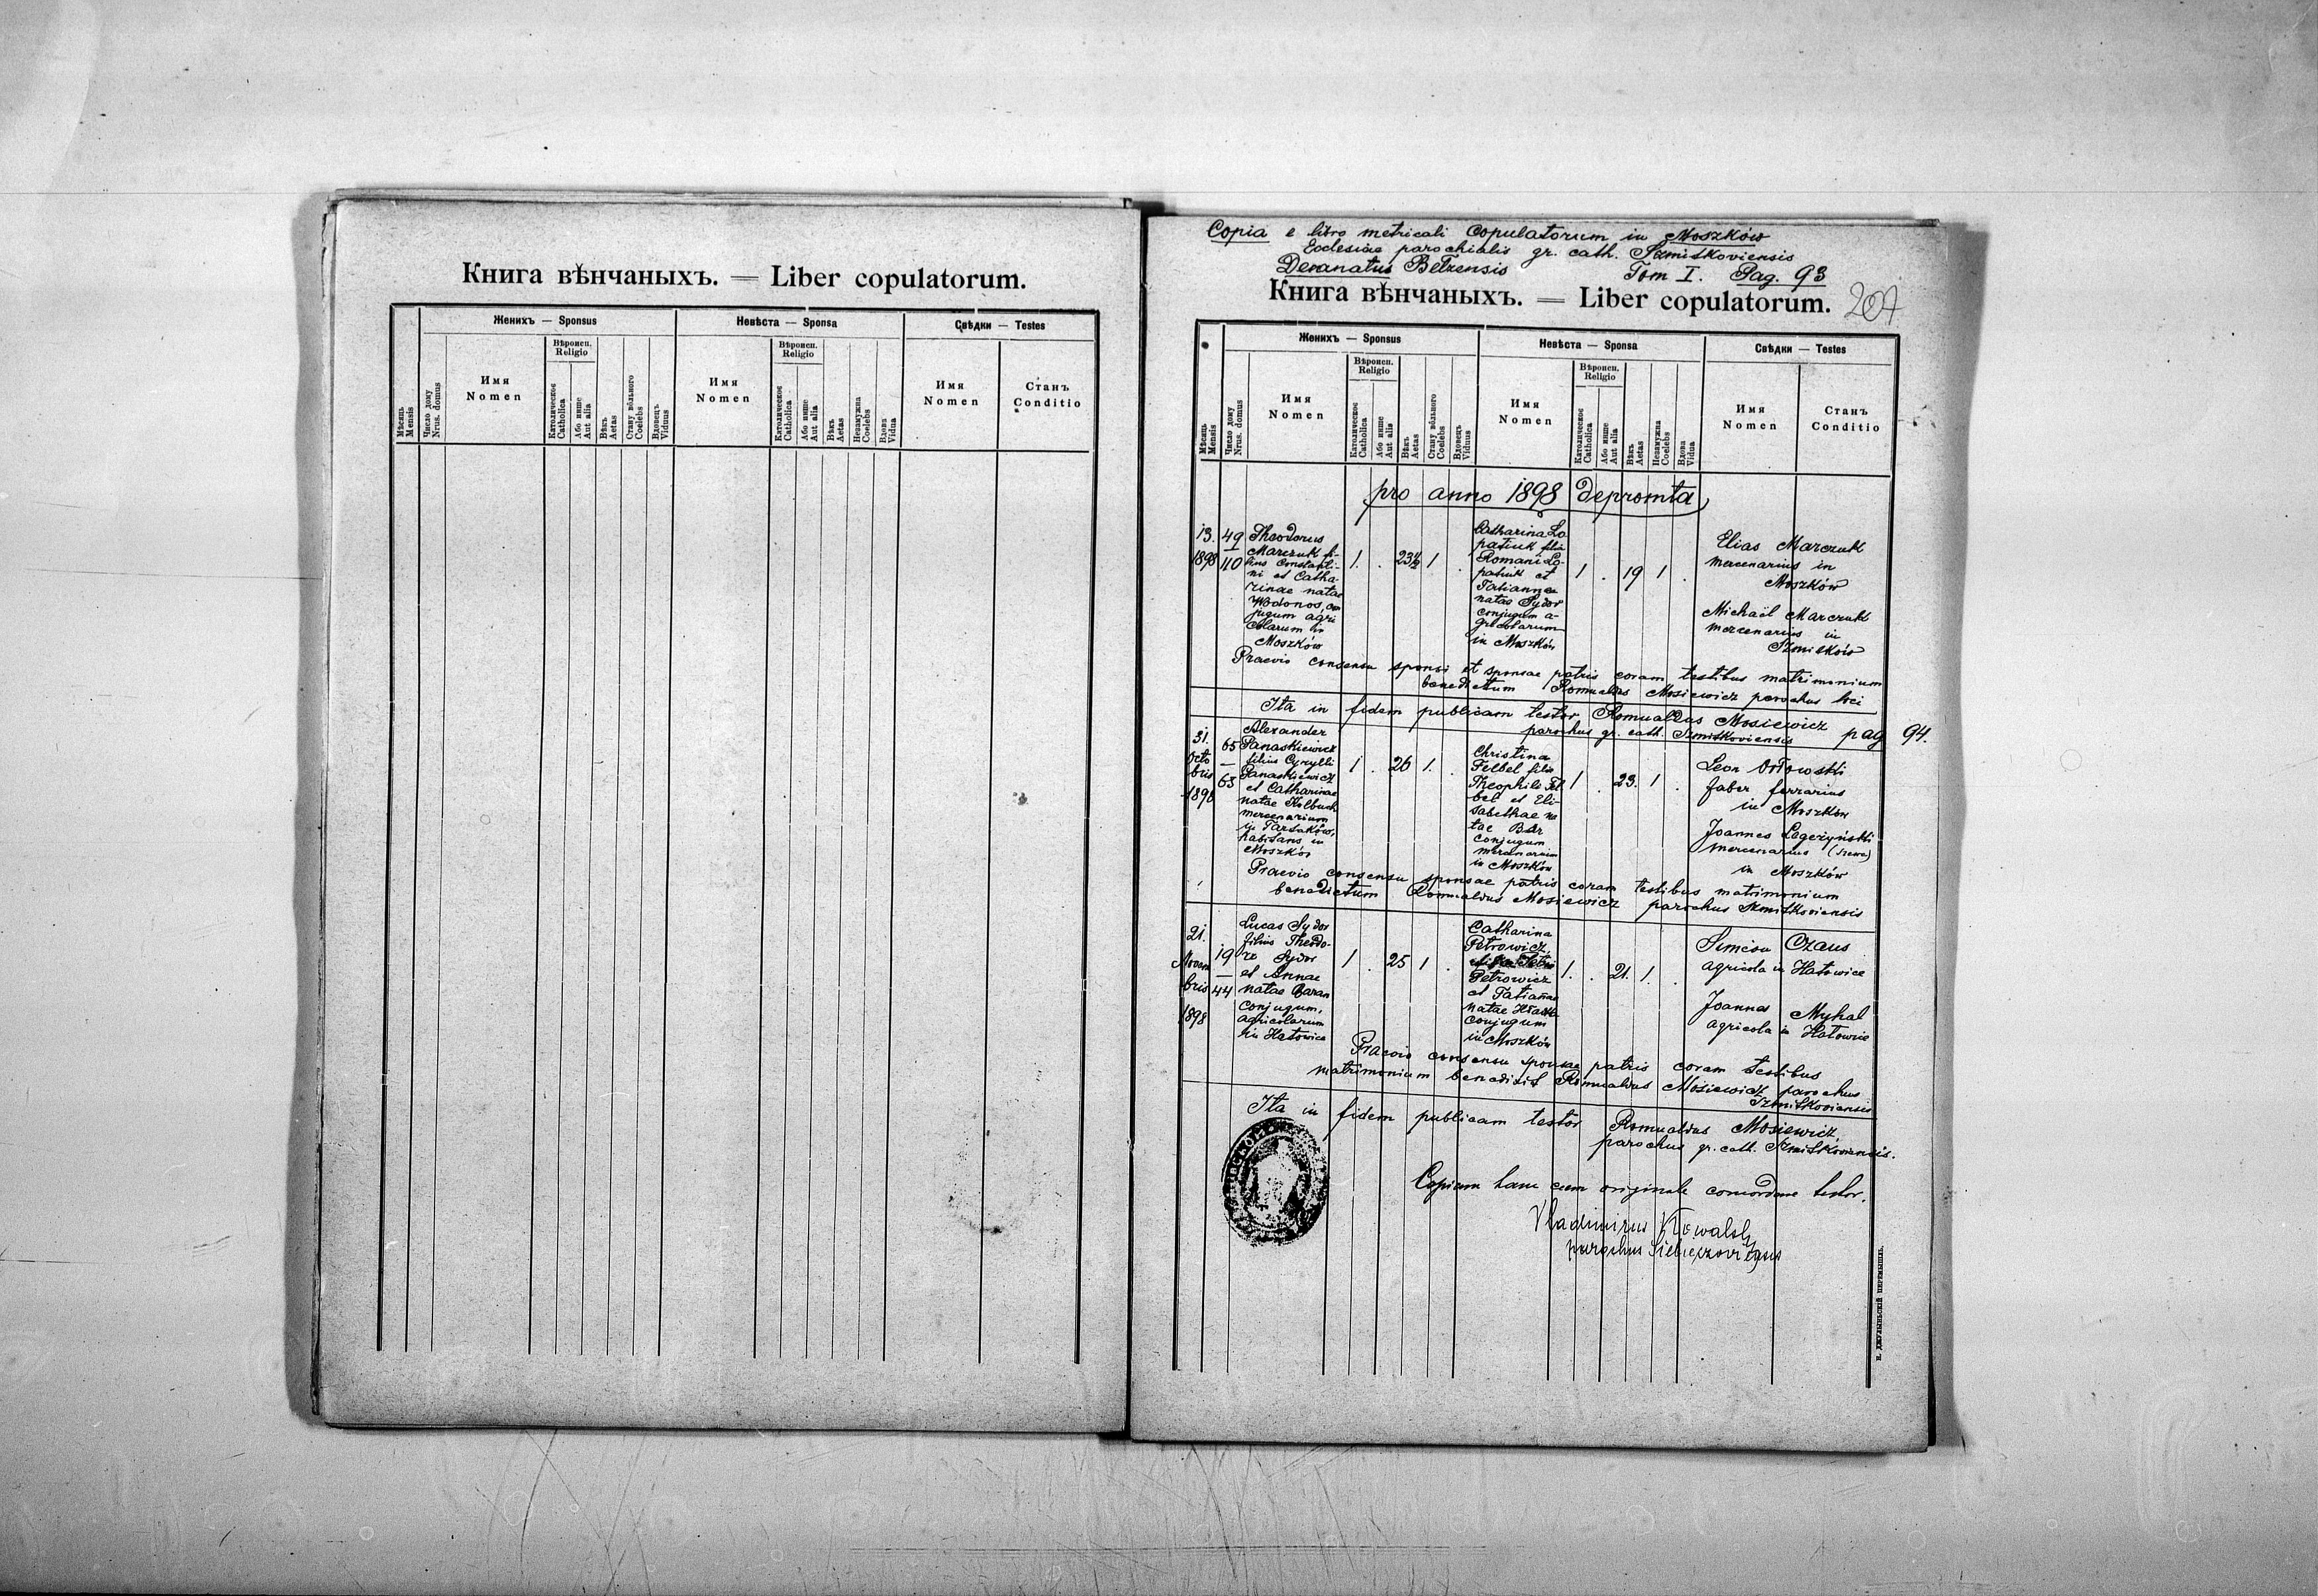 Книга вѣнчаныхъ. — Liber copulatorum.
Женихъ — Sponsus
Невѣста — Sponsa
Свѣдки — Testes
Мѣсяць Mensis
Число дому Nrus. domus
Имя Nomen
Вѣроисп. Religio
Католическое Catholica
Або инше Aut alia
Вѣкъ Aetas
Стану вôльного Coelebs
Вдовецъ Viduus
Имя Nomen
Вѣроисп. Religio
Католическое Catholica
Або инше Aut alia
Вѣкъ Aetas
Незамужна Coelebs
Вдова Vidua
Имя Nomen
Станъ Conditio
Copia e libro metricali Copulatorum in Moszków
Ecclesiae parochialis gr. cath. Szmitkoviensis
Decanatus Belzensis Tom I. Pag. 93
Книга вѣнчаныхъ. — Liber copulatorum. 207
Женихъ — Sponsus
Невѣста — Sponsa
Свѣдки — Testes
Мѣсяць Mensis
Число дому Nrus. domus
Имя Nomen
Вѣроисп. Religio
Католическое Catholica
Або инше Aut alia
Вѣкъ Aetas
Стану вôльного Coelebs
Вдовецъ Viduus
Имя Nomen
Вѣроисп. Religio
Католическое Catholica
Або инше Aut alia
Вѣкъ Aetas
Незамужна Coelebs
Вдова Vidua
Имя Nomen
Станъ Conditio
pro anno 1898 depromta
13.
1898
49
110
Theodorus
Marczuk fi-
lius Constanti-
ni et Catha-
rinae natae
Wodonos, con
jugum agri
colarum in
Moszków
1 . 23½ 1 .
Catharina Lo
patiuk filia
Romani Lo-
patiuk et
Tatiannae
natae Sydor
conjugum a-
gricolarum
in Moszków
1 . 19 1 .
Elias Marczuk
mercenarius in
Moszków
Michaël Marczuk
mercenarius in
Szmitków
Praevio consensu sponsi et sponsae patris coram testibus matrimonium
benedictum Romualdus Mosiewicz parochus loci
Ita in fidem publicam testor Romualdus Mosiewicz
parochus gr. cath. Szmitkoviensis pag 94.
31.
Octo
bris
1898
65
63
Alexander
Panaskiewicz
filius Cyrylli
Panaskiewicz
et Catharinae
natae Kolbuch
mercenarium
in Tartaków,
habitans in
Moszków
1 . 26 1 .
Christina
Felbel filia
Theophili Fel
bel et Eli-
sabethae na
tae Bar
conjugum
mercenarium
in Moszków
1 . 23. 1 .
Leon Orłowski
faber ferrarius
in Moszków
Joannes Lagożyński
mercenarius
in Moszków
Praevio consensu sponsae patris coram testibus matrimonium
benedictum Romualdus Mosiewicz parochus Szmitkoviensis
21.
Novem
bris
1898
19
44
Lucas Sydor
filius Theodo-
re Sydor
et Annae
natae Baran
conjugum,
agricolarum
in Hatowice
1 . 25 1 .
Catharina
Petrowicz
filia Petri
Petrowicz
et Tatiannae
natae
conjugum
in Moszków
1. . 21. 1. .
Simeon Czaus
agricola in Hatowice
Joannes Myhal
agricola in Hatowice
Praevio consensu sponsae patris coram testibus
matrimonium benedixit Romualdus Mosiewicz parochus
Szmitkoviensis
Ita in fidem publicam testor Romualdus Mosiewicz
parochus gr. cath. Szmitkoviensis.
Copiam hanc cum originale concordare testor.
Vladimirus Kowalsky
parochus